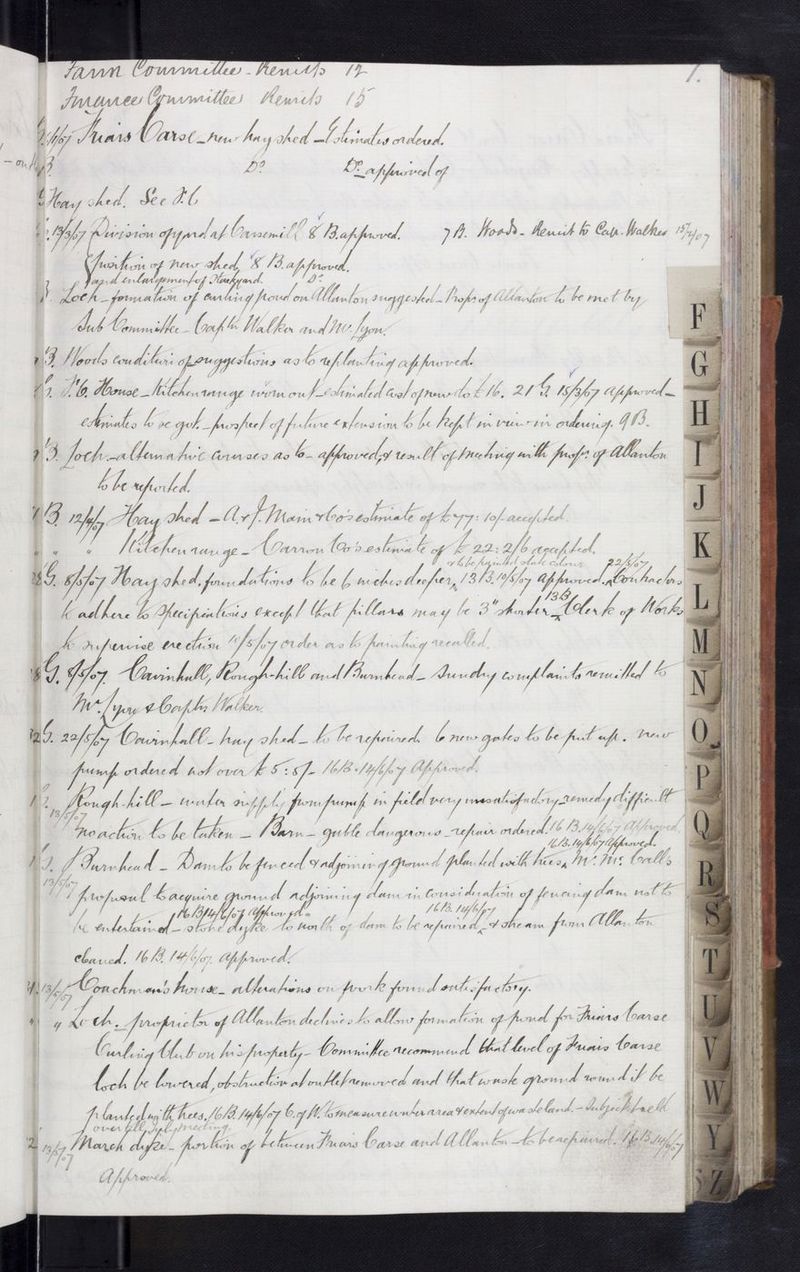 Farm Committee - Remits 12
Finance Committee Remits 15
1.
Friars Carse - new hay shed - Estimates ordered.
Do Do approved of
Hay shed. See F.C
13/3/07 Division of yard at Carsemill 8 B. approved. 7 B. Woods - Remit to Capt. Walker 15/2/07
position of new shed, 8 B. approved.
and enlargement of Stackyard. Do
Loch - formation of curling pond on Allanton suggested - Propr of Allanton to be met by
Sub Committee - Captn Walker and Mr. Lyon.
B. Woods condition of, suggestions as to replanting approved.
F.C. House - Kitchen range worn out - estimated cost of new do £16. 21 G. 15/3/07 approved -
estimates to be got. - prospect of future extension to be kept in view in ordering. 9 B.
B. Loch - alternative courses as to - approved, & result of meeting with propr. of Allanton
to be reported.
B. 12/4/07 Hay shed - A. & J. Main & Co's estimate of £77: 10/- accepted.
" " " Kitchen range - Carron Co's estimate of £22: 2/6 accepted.
& to be painted slate colour 22/5/07
G. 8/5/07 Hay shed, foundations to be 6 inches deeper, 13 B. 10/5/07 approved. Contractors
13 B
to adhere to specifications except that pillars may be 3" shorter - Clerk of Works
to supervise erection 10/5/07 order as to painting recalled.
G. 8/5/07. Cairnhall, Rough-hill and Burnhead - Sundry complaints remitted to
Mr. Lyon & Captn Walker.
G. 22/5/07 Cairnhall - hay shed - to be repaired. 6 new gates to be put up. new
pump ordered not over £5: 5/- 16 B. 14/6/07 Approved.
Rough-hill - water supply from pump in field very unsatisfactory - remedy difficult
13/5/07
no action to be taken - Barn - gable dangerous - repair ordered. 16 B. 14/6/07 Approved.
16 B. 14/6/07 Approved.
Burnhead - Dam to be fenced & adjoining ground planted with trees, Mr. Mc. Calls
13/5/07
proposal to acquire ground adjoining dam in consideration of fencing dam not to
16 B 14/6/07 Approved. 16 B. 14/6/07
be entertained - stone dyke to north of dam to be repaired, & stream from Allanton
cleaned. 16 B. 14/6/07. approved.
13/5/07 Coachman's house - alterations on work found satisfactory.
" " Loch. - proprietor of Allanton declines to allow formation of pond for Friars Carse
Curling Club on his property - Committee recommend that level of Friars Carse
loch be lowered, obstruction at outlet removed and that waste ground round it be
planted with trees. 16 B. 14/6/07 C. of W. to measure water area & extent of waste land. - Subject
over till July meeting.
13/5/07 March dyke - portion of between Friars Carse and Allanton - to be repaired. 16 B. 14/6/07
Approved.
F
G
H
I
J
K
L
M
N
O
P
Q
R
S
T
U
V
W
Y
Z